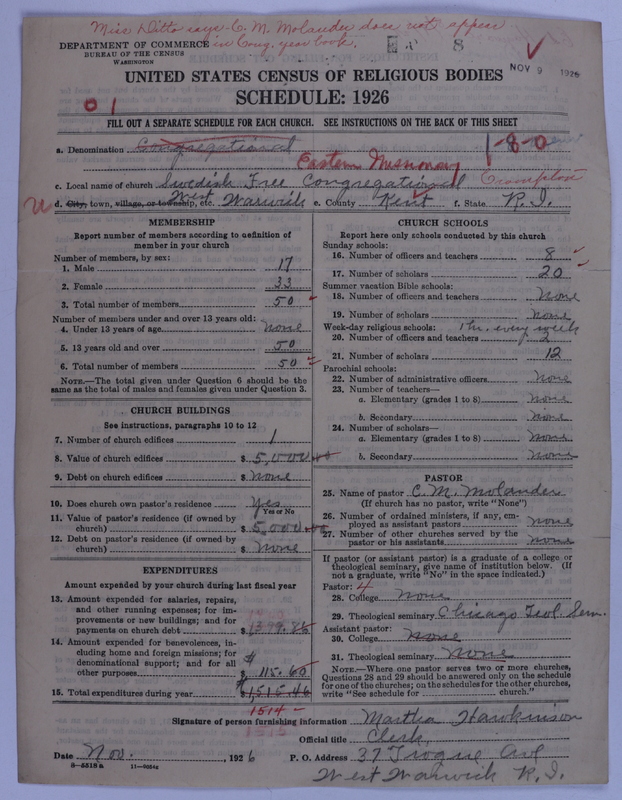 Miss Ditto says C. M. Molander does not appear
in Cong. year book.
DEPARTMENT OF COMMERCE
BUREAU OF THE CENSUS
WASHINGTON
8
NOV 9 1926
UNITED STATES CENSUS OF RELIGIOUS BODIES
SCHEDULE: 1926
01
FILL OUT A SEPARATE SCHEDULE FOR EACH CHURCH. SEE INSTRUCTIONS ON THE BACK OF THIS SHEET
a. Denomination Congregational
1-8-0
Eastern Missionary
c. Local name of church Swedish Free Congregational
d. City, town, village, or township, etc. West Warwick e. County Kent f. State R. I.
MEMBERSHIP
Report number of members according to definition of
member in your church
Number of members, by sex:
1. Male 17
2. Female 33
3. Total number of members 50
Number of members under and over 13 years old:
4. Under 13 years of age none
5. 13 years old and over 50
6. Total number of members 50
NOTE.—The total given under Question 6 should be the
same as the total of males and females given under Question 3.
CHURCH BUILDINGS
See instructions, paragraphs 10 to 12
7. Number of church edifices 1
8. Value of church edifices $ 5,000.00
9. Debt on church edifices $ none
10. Does church own pastor's residence Yes
Yes or No
11. Value of pastor's residence (if owned by
church) $ 5,000.00
12. Debt on pastor's residence (if owned by
church) $ none
EXPENDITURES
Amount expended by your church during last fiscal year
13. Amount expended for salaries, repairs,
and other running expenses; for im-
provements or new buildings; and for
payments on church debt $ 1399.86
14. Amount expended for benevolences, in-
cluding home and foreign missions; for
denominational support; and for all
other purposes $ 115.60
15. Total expenditures during year $ 1515.46
1514 —
1515
CHURCH SCHOOLS
Report here only schools conducted by this church
Sunday schools:
16. Number of officers and teachers 8
17. Number of scholars 20
Summer vacation Bible schools:
18. Number of officers and teachers None
19. Number of scholars none
Week-day religious schools: 1 hr. every week
20. Number of officers and teachers 2
21. Number of scholars 12
Parochial schools:
22. Number of administrative officers none
23. Number of teachers—
a. Elementary (grades 1 to 8) none
b. Secondary none
24. Number of scholars—
a. Elementary (grades 1 to 8) none
b. Secondary none
PASTOR
25. Name of pastor C. M. Molander
(If church has no pastor, write "None")
26. Number of ordained ministers, if any, em-
ployed as assistant pastors none
27. Number of other churches served by the
pastor or his assistants none
If pastor (or assistant pastor) is a graduate of a college or
theological seminary, give name of institution below. (If
not a graduate, write "No" in the space indicated.)
Pastor: 4
28. College None
29. Theological seminary Chicago Teol. Sem.
Assistant pastor:
30. College None
31. Theological seminary None
NOTE.—Where one pastor serves two or more churches,
Questions 28 and 29 should be answered only on the schedule
for one of the churches; on the schedules for the other churches,
write "See schedule for church."
Signature of person furnishing information Martha Hawkinson
Official title Clerk
Date Nov. , 1926 P. O. Address 37 Ave
8—5518 a 11—9054
West Warwick R. I.